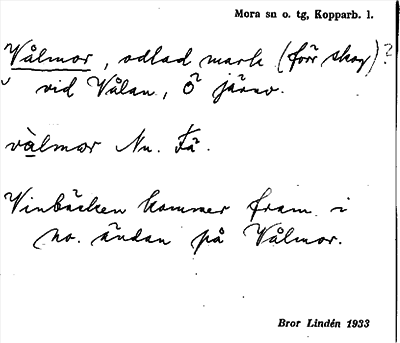 Mora sn o. tg, Kopparb. l.
Vålmor, odlad mark (förr skog)?
vid Vålan, Ö järnv.
vàlmær Nu. Fä.
Vinbäcken kommer fram i
no. ändan på Vålmor.
Bror Lindén 1933